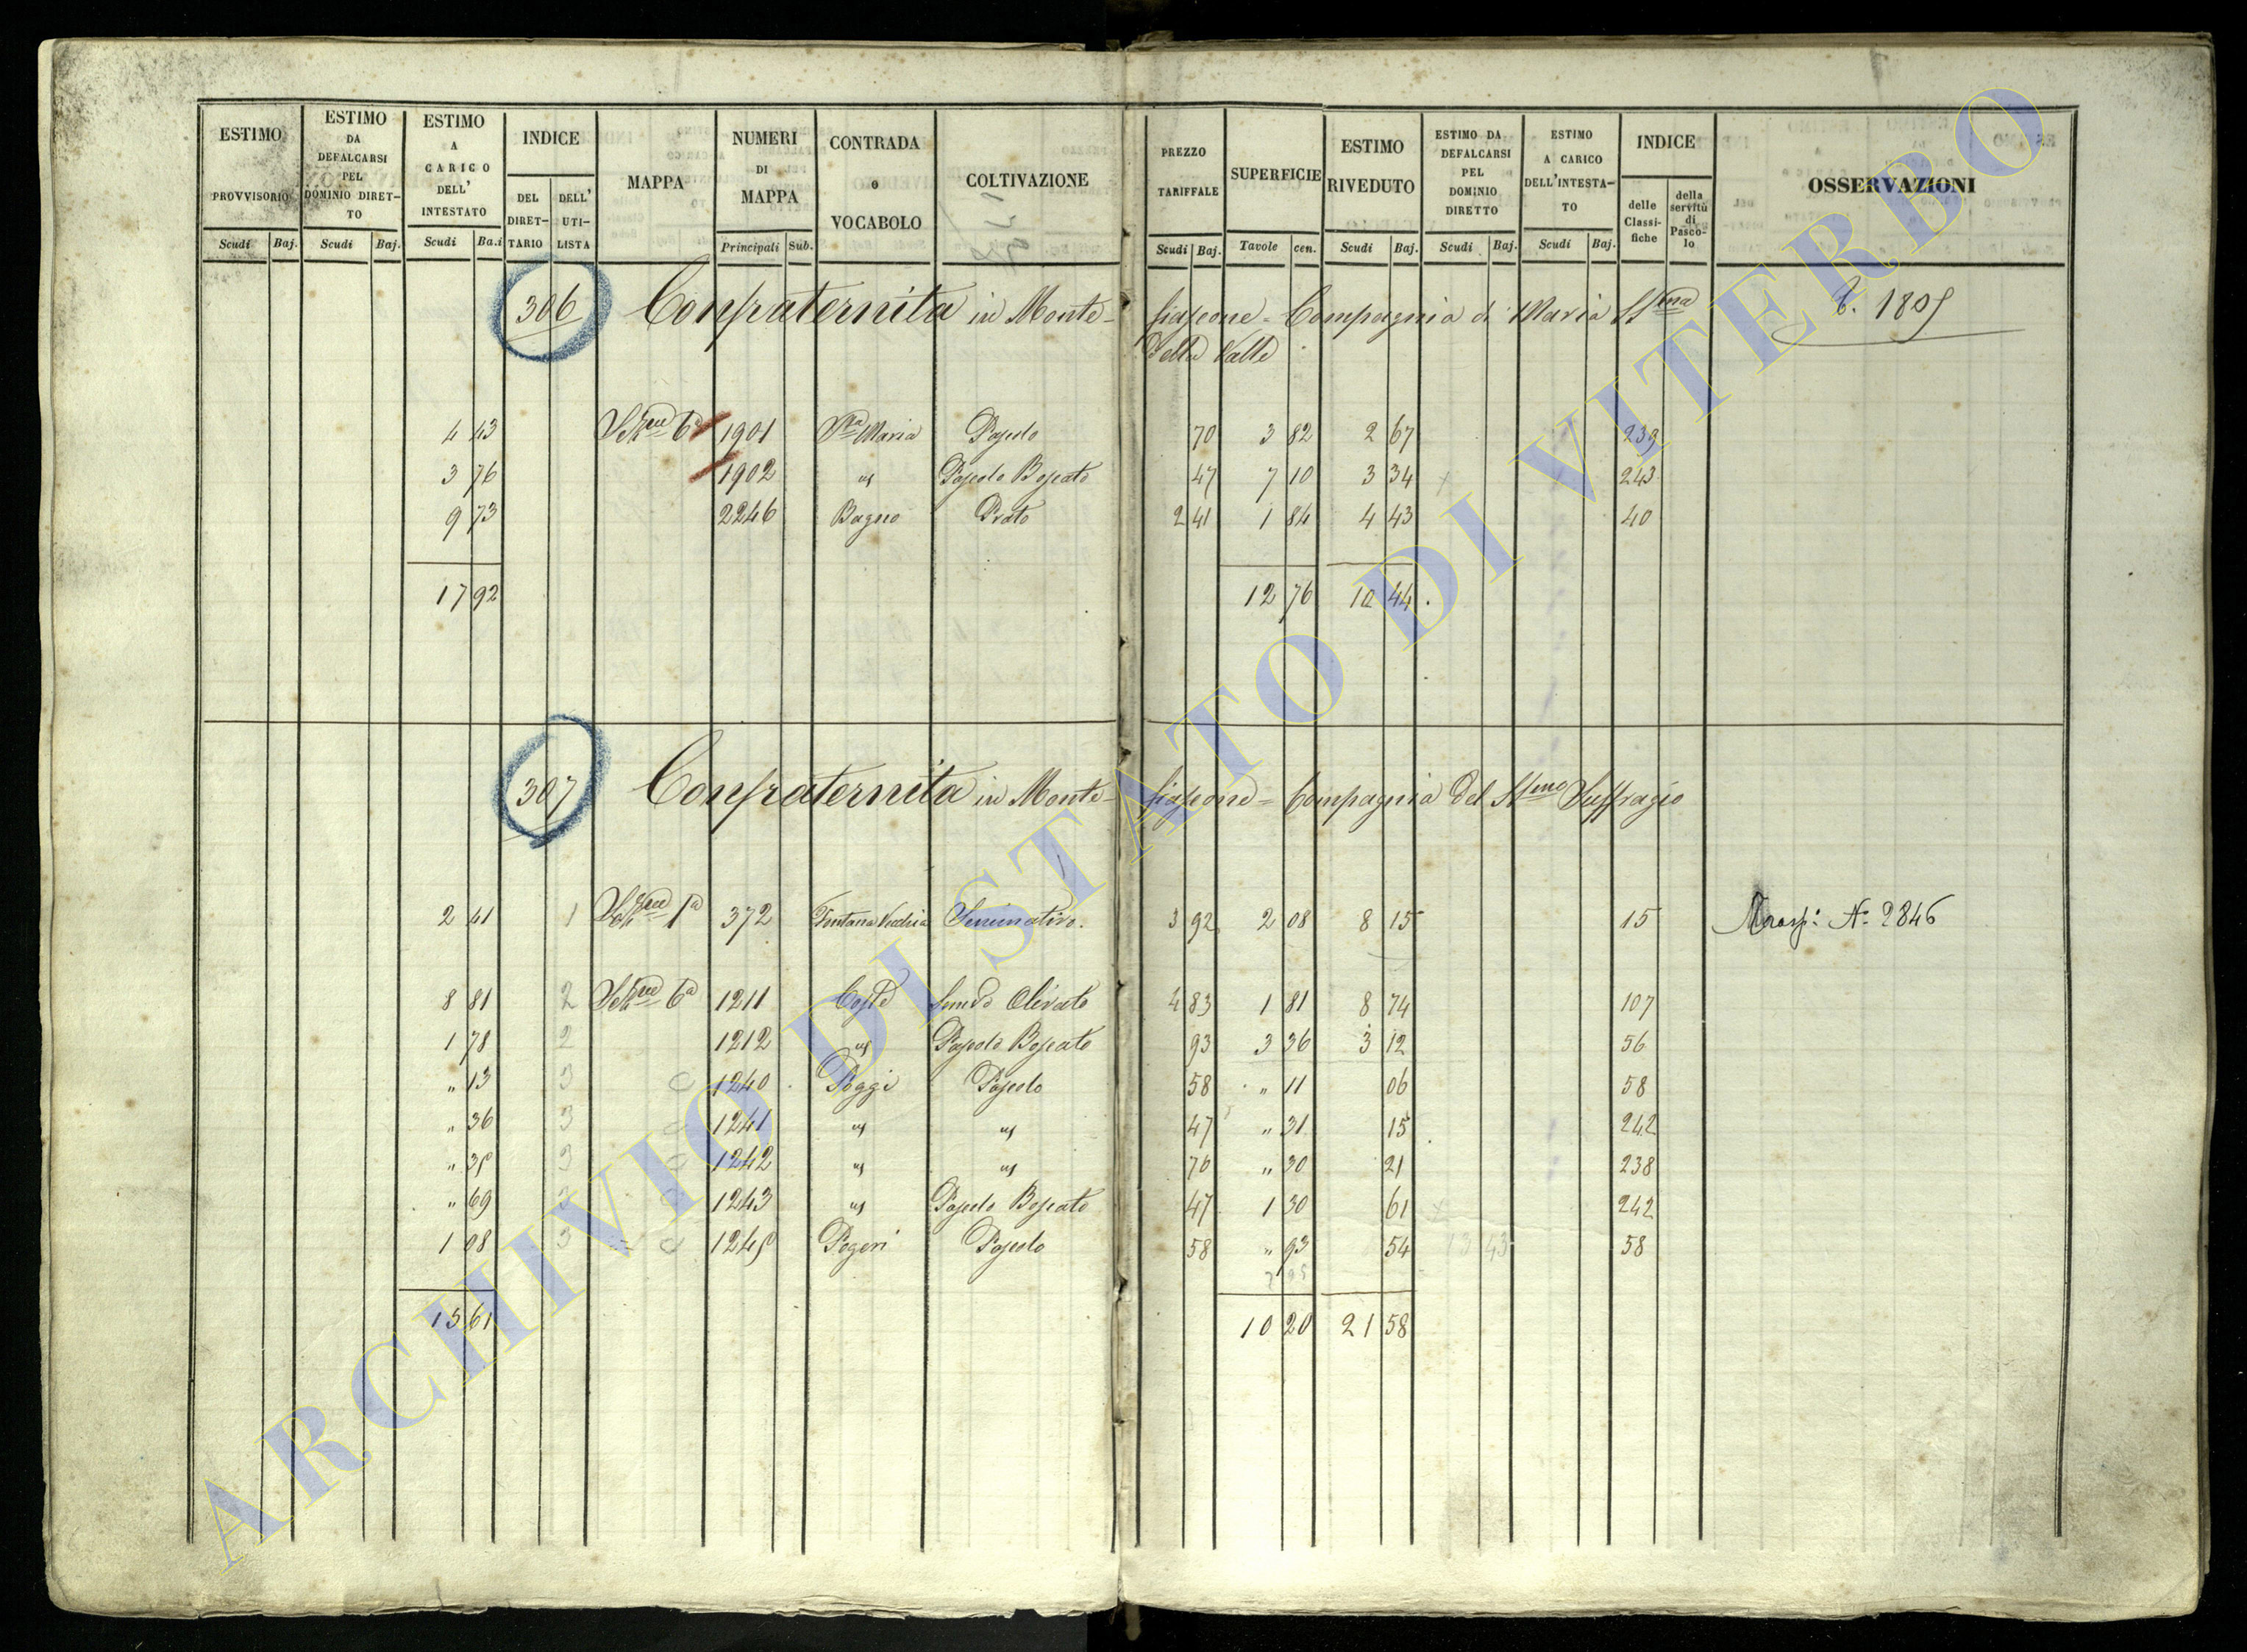 ESTIMO PROVVISORIO Scudi Baj.
ESTIMO DA DEFALCARSI PEL DOMINIO DIRET-TO Scudi Baj.
ESTIMO A CARICO DELL' INTESTATO Scudi Ba.i
INDICE DEL DIRET-TARIO DELL' UTI-LISTA
MAPPA
NUMERI DI MAPPA Principali Sub.
CONTRADA o VOCABOLO
COLTIVAZIONE
PREZZO TARIFFALE Scudi Baj.
SUPERFICIE Tavole cen.
ESTIMO RIVEDUTO Scudi Baj.
ESTIMO DA DEFALCARSI PEL DOMINIO DIRETTO Scudi Baj.
ESTIMO A CARICO DELL'INTESTA-TO Scudi Baj.
INDICE delle Classi-fiche della servitù di Pasco-lo
OSSERVAZIONI
306 Confraternita in Monte-fiascone = Compagnia di Maria SSma
della Valle
4 43 Sezne 6a 1901 Sta Maria Pascolo 70 3 82 2 67 239
3 76 1902 " Pascolo Boscato 47 7 10 3 34 243
9 73 2246 Bagno Prato 2 41 1 84 4 43 40
17 92 12 76 10 44
307 Confraternita in Monte-fiascone = Compagnia del SSmo Suffragio
2 41 1 Sezne 1a 372 Fontana Vecchia Seminativo. 3 92 2 08 8 15 15 Trasp: N. 2846
8 81 2 Sezne 6a 1211 Coste Semvo Olivato 4 83 1 81 8 74 107
1 78 2 1212 " Pascolo Boscato 93 3 36 3 12 56
" 13 3 1240 Poggi Pascolo 58 " 11 06 58
" 36 3 1241 " " 47 " 31 15 242
" 35 3 1242 " " 70 " 30 21 238
" 69 3 1243 " Pascolo Boscato 47 1 30 61 242
1 08 3 1245 Pogeri Pascolo 58 " 93 54 13 43 58
15 61 10 20 21 58
ARCHIVIO DI STATO DI VITERBO